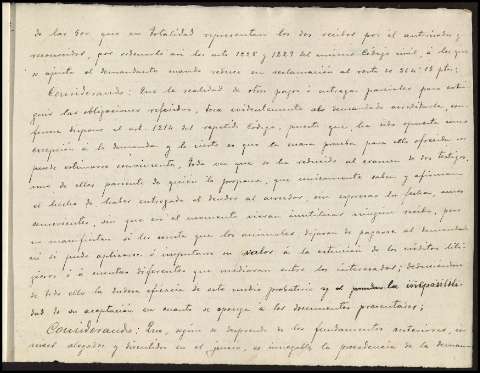 de las 500 que en totalidad representan los dos recibos por él autorizados y
reconocidos, por ordenarlo así los arts 1225 y 1229 del mismo Código civil, á lo que
se ajusta el demandante cuando reduce su reclamación al resto de 364'15 pts;
Considerando: Que la realidad de otros pagos ó entregas parciales para exti-
guir las obligaciones referidas, toca evidentemente al demandado acreditarla, con-
forme dispone el art. 1214 del repetido Código, puesto que ha sido opuesta como
excepción á la demanda y lo cierto es que la escasa prueba para ello ofrecida no
puede estimarse convincente, toda vez que se ha reducido al examen de dos testigos,
uno de ellos pariente de quien lo propone, que únicamente saben y afirman
el hecho de haber entregado el deudor al acreedor, sin expresar la fecha, unos
semovientes, sin que en el momento vieran inutilizar ningún recibo, pero
sin manifestar si les consta que los animales dejaran de pagarse al demandado
ni si pudo aplicarse ó imputarse su valor á la extinción de los créditos liti-
giosos ó á cuentas diferentes que mediaran entre los interesados; deduciéndose
de todo ello la dudosa eficacia de este medio probatorio y la imposibili-
dad de su aceptación en cuanto se oponga á los documentos presentados;
Considerando: Que, según se desprende de los fundamentos anteriores, en
unos alegados y discutidos en el juicio, es innegable la procedencia de la deman-